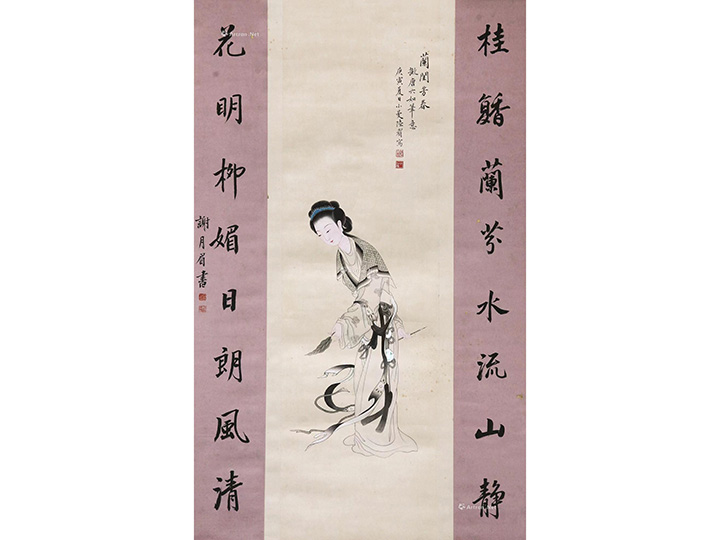 桂馥蘭芬水流山静
蘭閨芳春
唐六如筆意
庚寅夏日小曼陸眉寫
花明柳媚日朗風清
謝月眉書
Artron.Net
Artron.Net